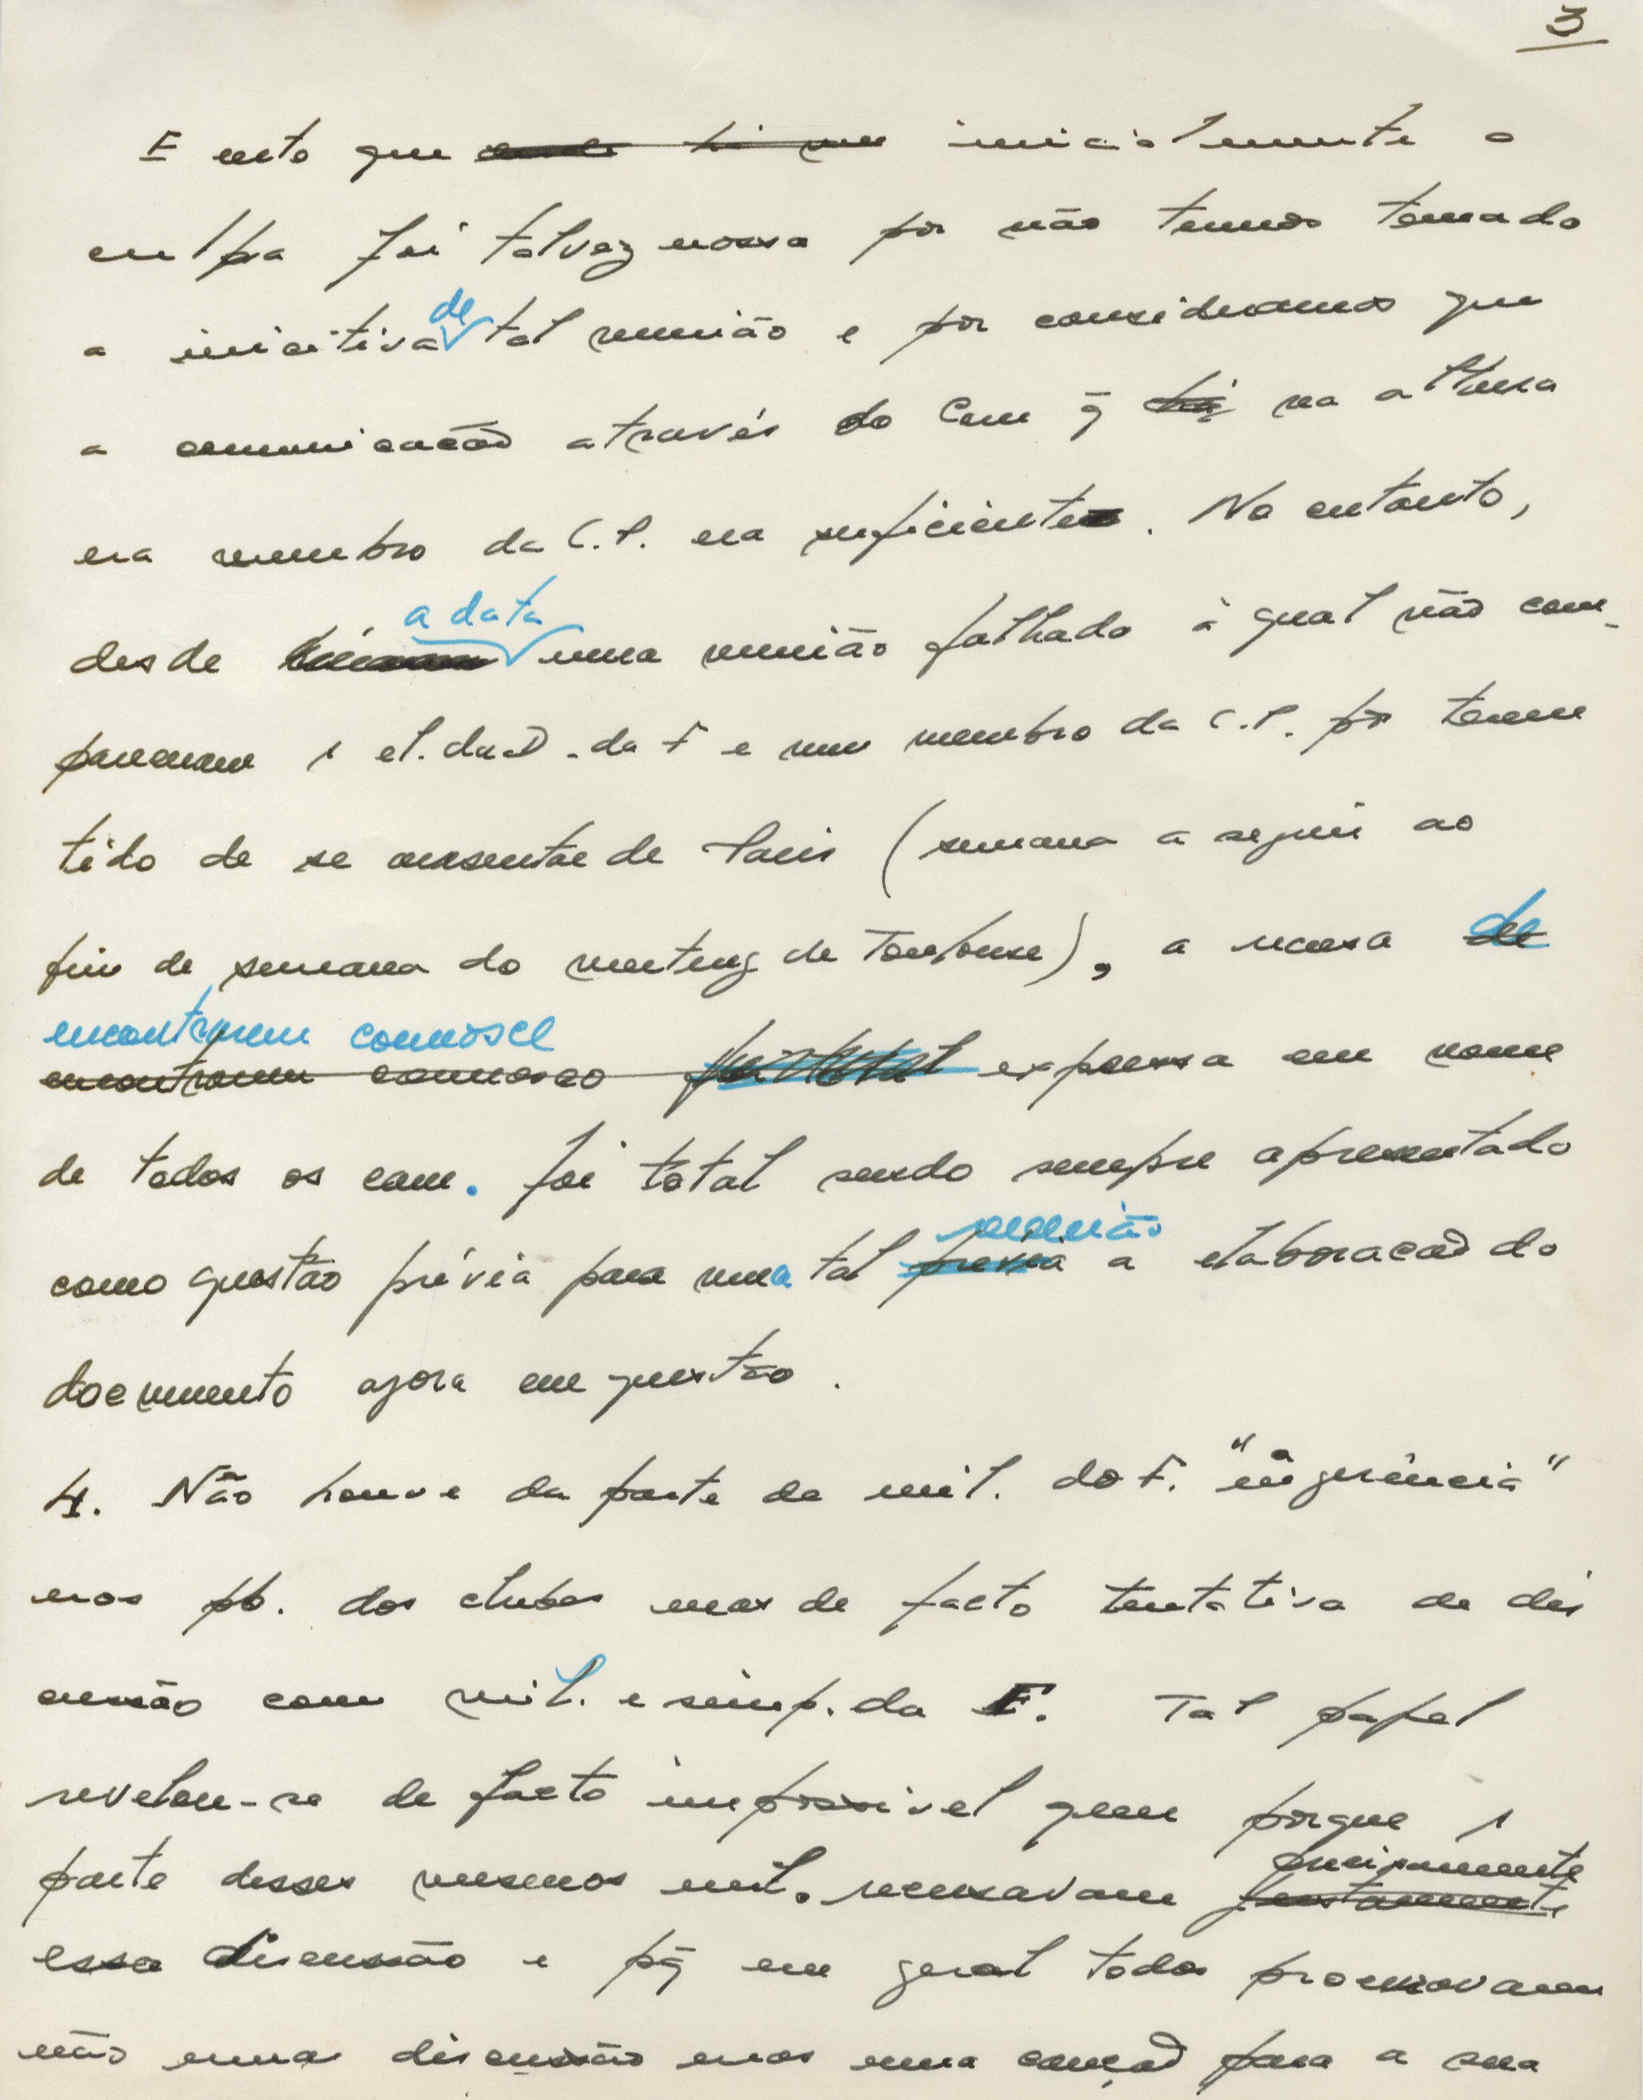 3
E certo que inicialmente a
culpa foi talvez nossa por não termos tomado
a iniciativa de tal reunião e por considerarmos que
a comunicação através do Cam q̃ na altura
era membro da C.P. era suficiente. No entanto,
desde a data uma reunião falhada à qual não com-
pareceram 1 el. da D. da F e um membro da C.P. por terem
tido de se ausentar de Paris (semana a seguir ao
fim de semana do meeting de Toulouse), a recusa de
encontrarem connosco
encontrarem connosco expressa em nome
de todos os cam. foi total sendo sempre apresentado
reunião
como questão prévia para uma tal a elaboração do
documento agora em questão.
4. Não houve da parte de mil. do F. "ingerência"
nos pb. dos clubes mas de facto tentativa de dis
cussão com mil. e simp. da F. Tal papel
revelou-se de facto impossível quer porque 1
precisamente
parte desses mesmos mil. recusavam justamente
essa discussão e pq̃ em geral todos procuravam
não uma discussão mas uma caução para a sua